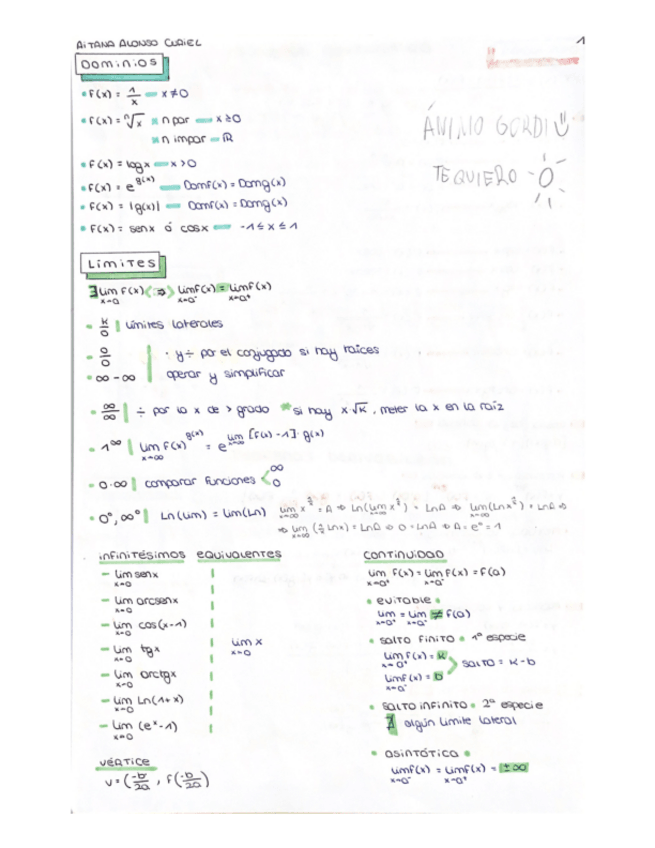 AITANA ALONSO CURIEL
1
Dominios
• f(x) = 1/x — x≠0
• f(x) = ⁿ√x n par — x≥0
n impar — ℝ
• f(x) = log x — x>0
• f(x) = e^g(x) — Domf(x) = Domg(x)
• f(x) = |g(x)| — Domf(x) = Domg(x)
• f(x) = senx ó cosx — -1≤x≤1
ÁNIMO GORDI
TE QUIERO
Límites
∃ lim f(x) <=> lim f(x) = lim f(x)
x→a x→a⁻ x→a⁺
- k/0 | límites laterales
- 0/0 · y÷ por el conjugado si hay raíces
- ∞-∞ operar y simplificar
- ∞/∞ | ÷ por la x de > grado * si hay x√k, meter la x en la raíz
- 1^∞ | lim f(x)^g(x) = e^lim [f(x)-1]·g(x)
x→∞ x→∞
- 0·∞ | comparar funciones < ∞ 0
- 0⁰, ∞⁰ | Ln(lim) = lim(Ln)
⇒ 0 = LnA ⇒ A = e⁰ = 1
infinitésimos equivalentes
- lim senx
x→0
- lim arcsenx
x→0
- lim cos(x-1)
x→0
- lim tgx
x→0
- lim arctgx
x→0
- lim Ln(1+x)
x→0
- lim (eˣ-1)
x→0
lim x
x→0
vértice
v = (-b/2a, f(-b/2a))
continuidad
lim f(x) = lim f(x) = f(a)
x→a⁺ x→a⁻
• evitable •
lim = lim ≠ f(a)
x→a⁺ x→a⁻
• salto finito • 1ª especie
lim f(x) = k
x→a⁺
> salto = k-b
lim f(x) = b
x→a⁻
• salto infinito • 2ª especie
∄ algún límite lateral
• asintótica •
lim f(x) = lim f(x) = ±∞
x→a⁻ x→a⁺